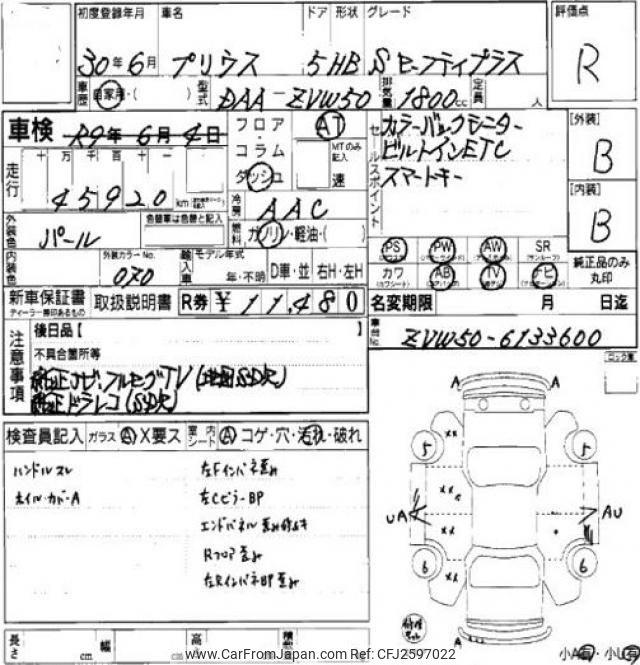 初度登録年月 車名 ドア 形状 グレード 評価点
30年6月 プリウス 5HB Sセーフティプラス R
車歴 自家用・( ) 型式 DAA-ZVW50 排気量 1800cc 定員 人
車検 R9年6月4日
フロア・コラム ダッシュ
AT MTのみ記入 速
セールスポイント
カラーバックモニター
ビルトインETC
スマートキー
[外装] B
[内装] B
走行 十万千百十一 45920 km
冷房 AAC
外装色 パール 色替車は色替と記入
燃料 ガソリン・軽油・( )
内装色 外装カラーNo. 070 輸入車 モデル年式 年・不明 D車・並 右H・左H
PS PW AW SR (サンルーフ)
カワ AB TV ナビ
純正品のみ丸印
新車保証書 ディーラー捺印あるもの 取扱説明書 R券 ¥11,480
名変期限 月 日迄
車台No. ZVW50-6133600
注意事項
後日品【
不具合箇所等
純正ナビ・フルセグTV(地図SDR)
純正ドラレコ(SDR)
ロック車
検査員記入 ガラス A X要ス 室内シート A コゲ・穴・汚れ・破れ
ハンドルスレ
左Fインパネ歪み
ホイルカバーA
左CピラーBP
エンドパネル歪み修ムキ
Rフロア歪み
左RインパネBP歪み
A A
5 5
UA AU
6 6
A
長さ cm 幅 cm 高さ cm
小A有・小U有
www.CarFromJapan.com Ref: CFJ2597022